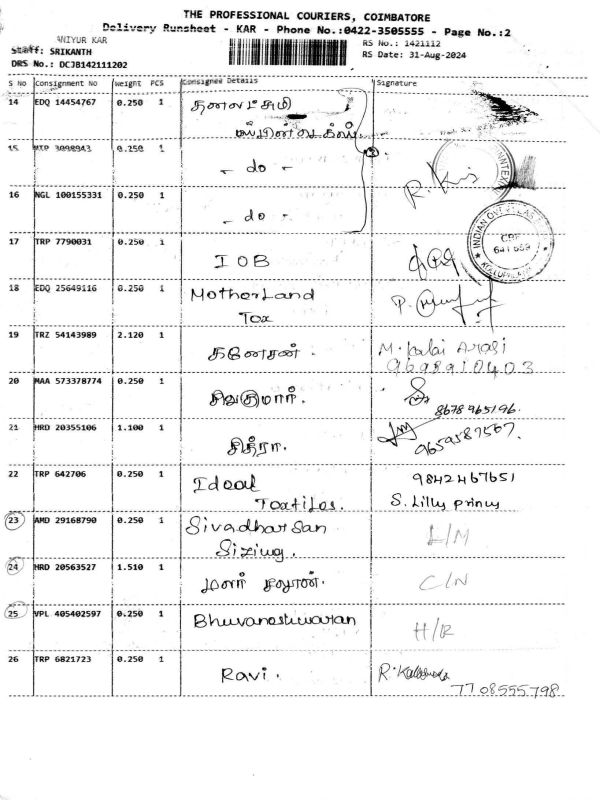 THE PROFESSIONAL COURIERS, COIMBATORE
Delivery Runsheet - KAR - Phone No.:0422-3505555 - Page No.:2
ANIYUR KAR
Staff: SRIKANTH
RS No.: 1421112
DRS No.: DCJB142111202
RS Date: 31-Aug-2024
S No Consignment No Weight PCS Consignee Details Signature
14 EDQ 14454767 0.250 1 தனலட்சுமி
15 MTP 3098943 0.250 1 - do -
16 NGL 100155331 0.250 1 - do -
17 TRP 7790031 0.250 1 IOB
INDIAN OVERSEAS
18 EDQ 25649116 0.250 1 Motherland
Tex
19 TRZ 54143989 2.120 1 கனேசன். M. Kalai Arasi
9698910403
20 MAA 573378774 0.250 1 சிவகுமார். 8678965196.
21 HRD 20355106 1.100 1 சித்ரா. 9659587567.
22 TRP 642706 0.250 1 Ideal 9842467651
Textiles. S. Lilly princy
23 AMD 29168790 0.250 1 Sivadharsan L/M
Sizing.
24 HRD 20563527 1.510 1 C/N
25 VPL 405402597 0.250 1 Bhuvaneshwaran H/R
26 TRP 6821723 0.250 1 Ravi.
7708555798